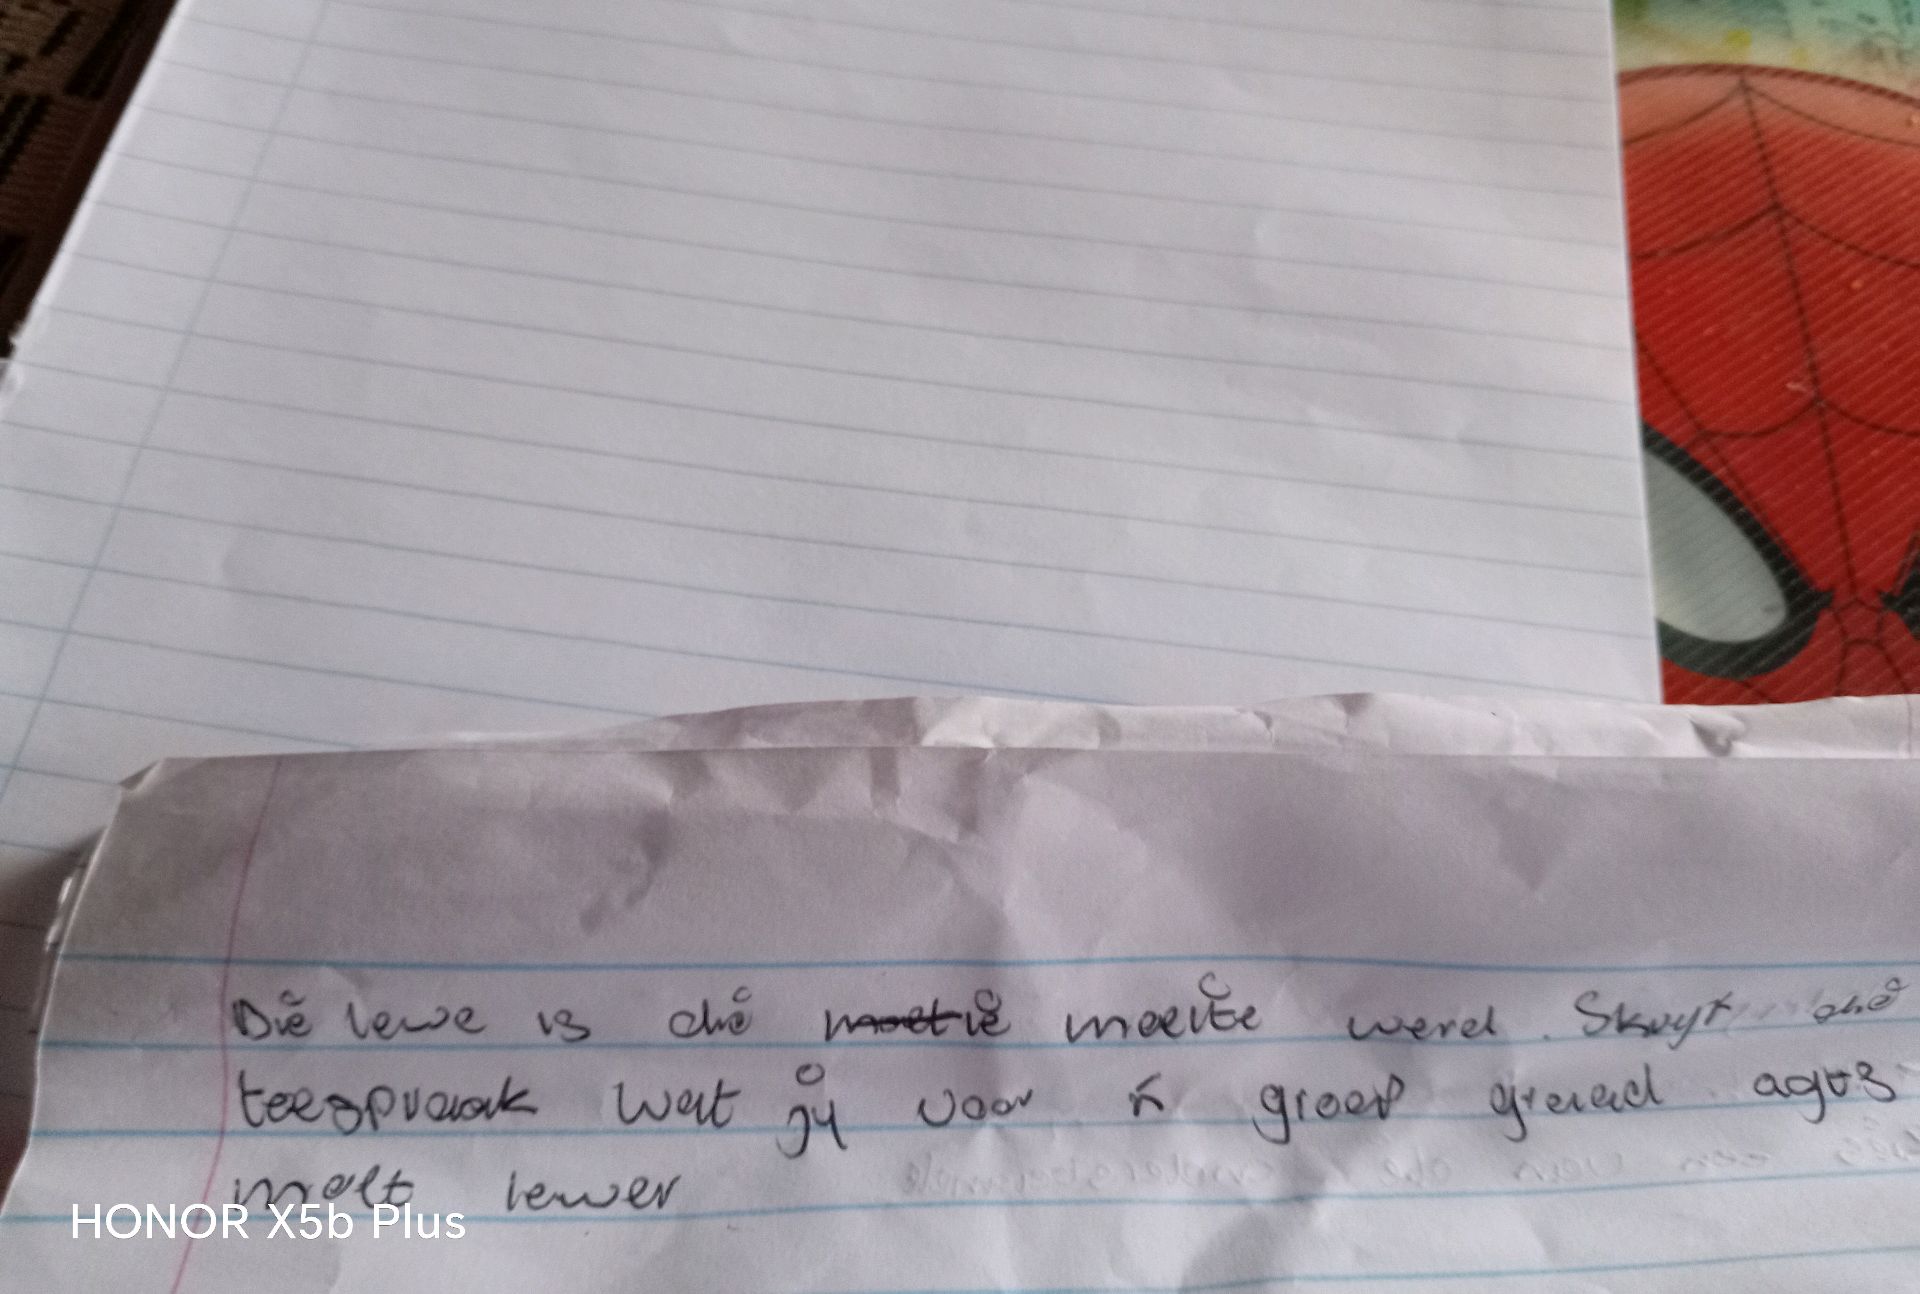 Die lewe is die moeite werd. Skryf die
toespraak wat jy voor 'n groep graad agts
moet lewer
HONOR X5b Plus